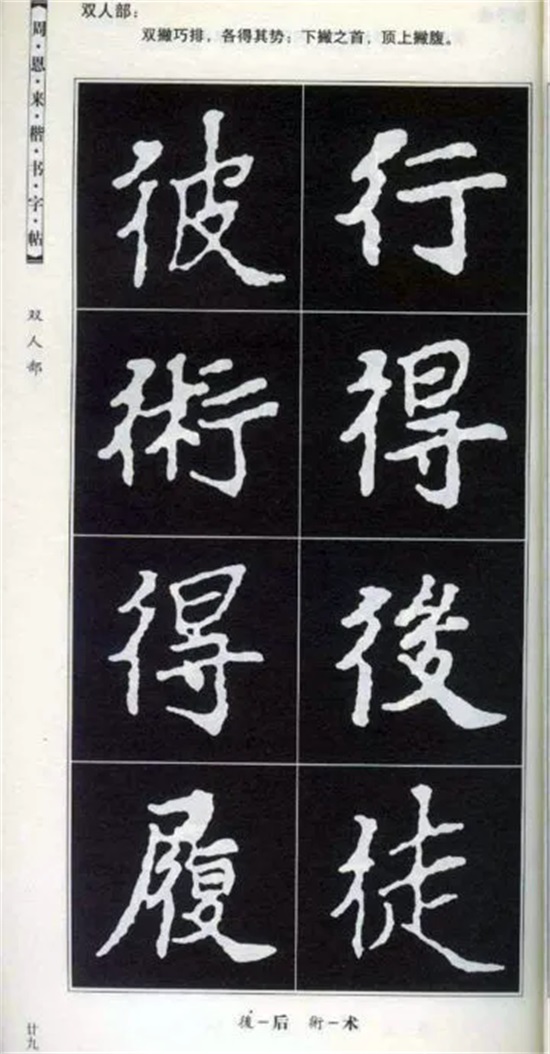 双人部：
双撇巧排，各得其势；下撇之首，顶上撇腹。
【周·恩·来·楷·书·字·帖】
双人部
行
得
後
徒
彼
術
得
履
後－后 術－术
廿九